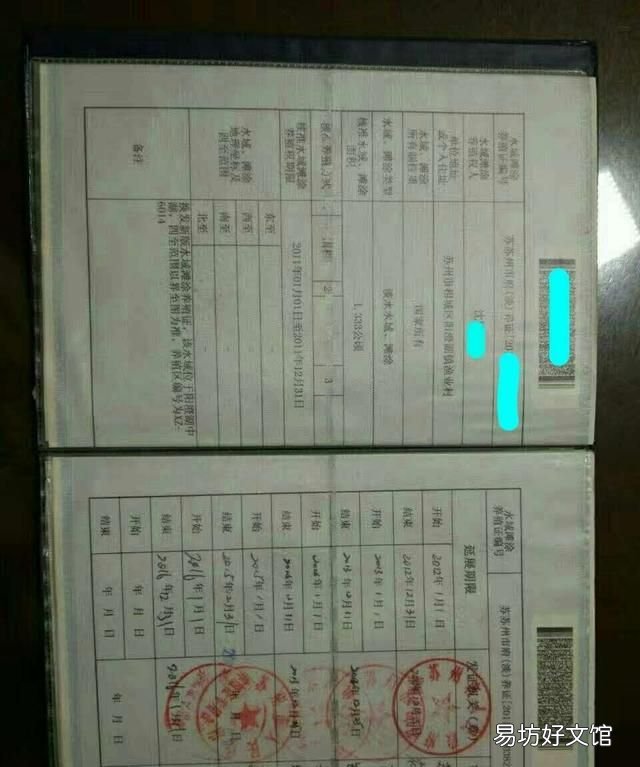 水域滩涂
养殖证编号
苏苏州市府(淡)养证[20
水域滩涂
养殖权人
沈
单位地址
或个人住址
苏州市相城区阳澄湖镇渔业村
水域、滩涂
所有制性质
国家所有
水域、滩涂类型
淡水水域、滩涂
核准水域、滩涂
面积
1.333公顷
核准养殖方式
1
围栏
2
3
核准水域滩涂
养殖权期限
2011年01月01日至2011年12月31日
水域、滩涂
地理坐标及
四至范围
东至
西至
南至
北至
备注
换发新版水域滩涂养殖证,该水域位于阳澄湖中
湖,四至范围以界至图为准,养殖区编号为XZ-
6014
水域滩涂
养殖证编号
苏苏州市府(淡)养证[201
延展期限
发证机关(章)
开始
2012年1月1日
结束
2012年12月31日
开始
2013年1月1日
结束
2013年12月31日
开始
2014年1月1日
结束
2014年12月31日
开始
2015年1月1日
结束
2015年12月31日
开始
2016年1月1日
结束
2016年12月31日
开始
年 月 日
结束
年 月 日
年 月 日
易坊好文馆